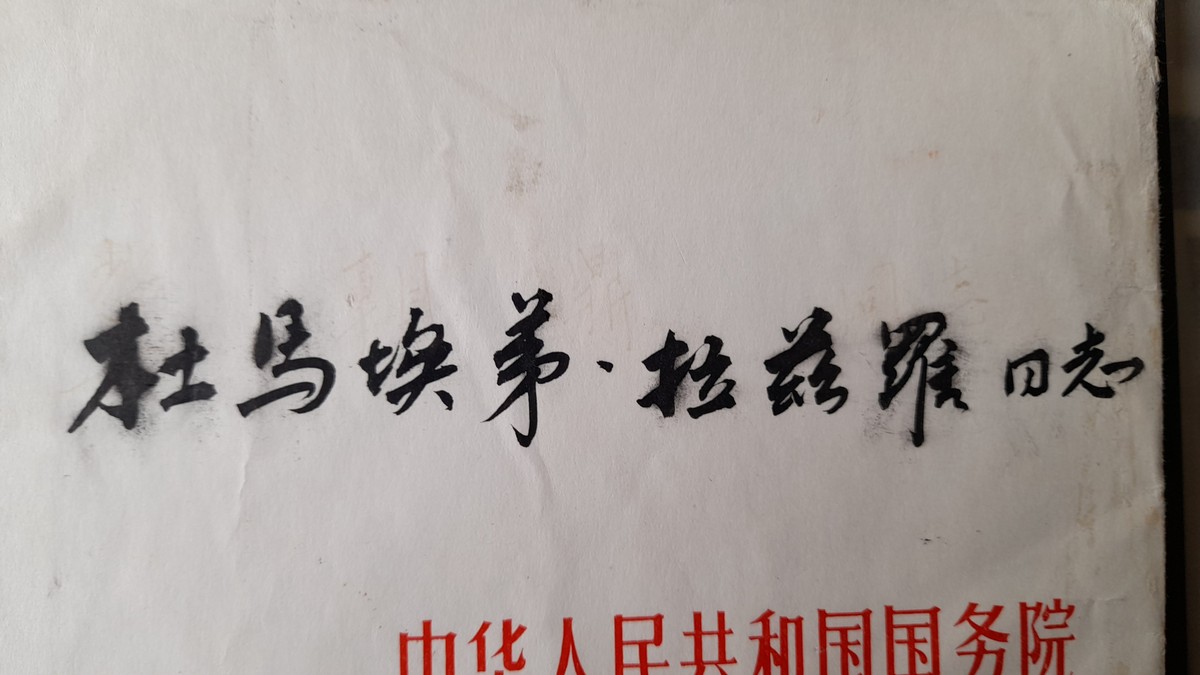 杜马埃弟·拉兹罗同志
中华人民共和国国务院